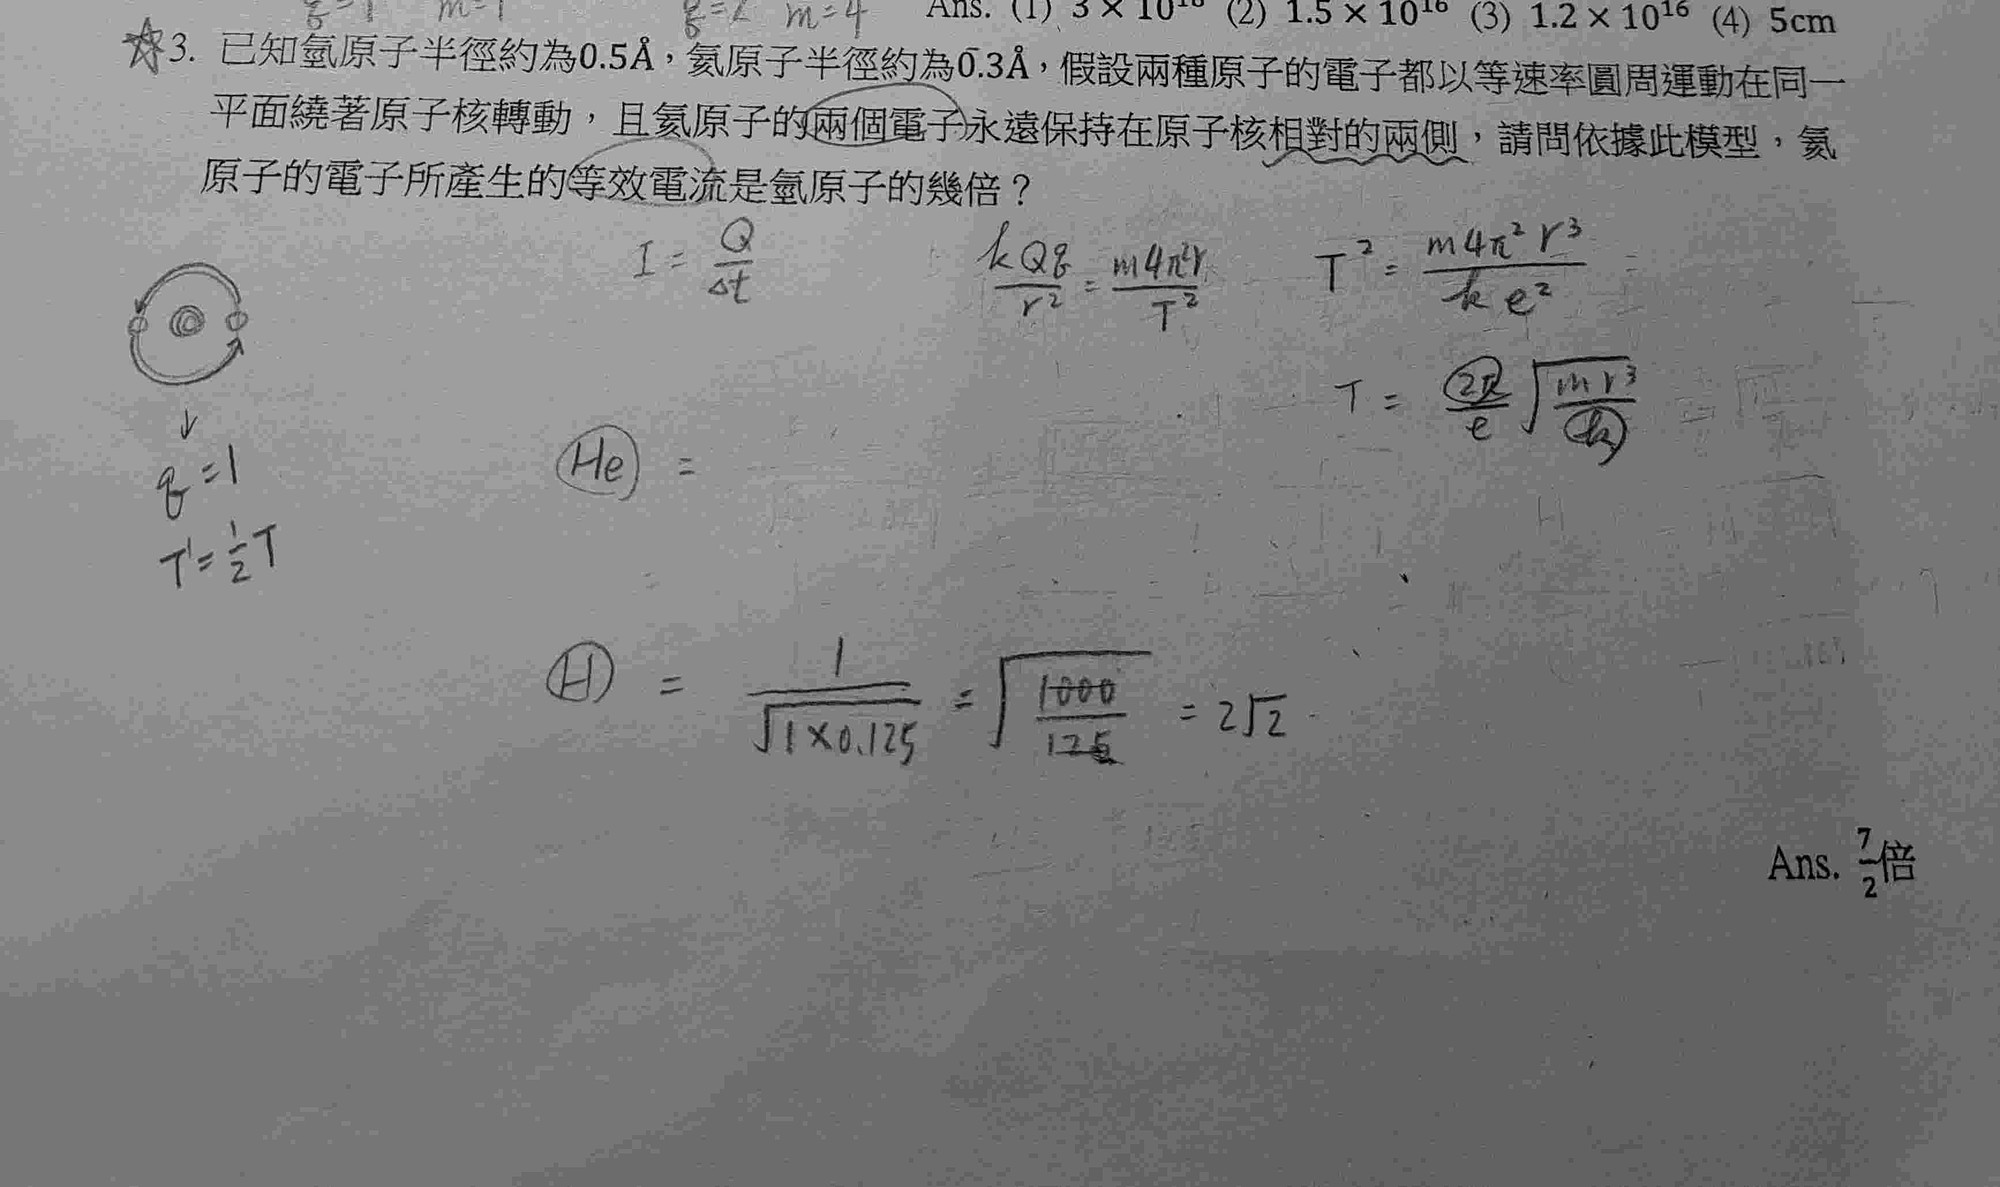 q=1 m=1 q=2 m=4 Ans. (1) 3 × 10¹⁶ (2) 1.5 × 10¹⁶ (3) 1.2 × 10¹⁶ (4) 5cm
☆3. 已知氫原子半徑約為0.5Å，氦原子半徑約為0.3Å，假設兩種原子的電子都以等速率圓周運動在同一
平面繞著原子核轉動，且氦原子的兩個電子永遠保持在原子核相對的兩側，請問依據此模型，氦
原子的電子所產生的等效電流是氫原子的幾倍？
I = Q/Δt kQq/r² = m4π²r/T² T² = m4π²r³/ke²
T = 2π/e √(mr³/k)
↓
q=1
T'=½T
He =
H = 1/√(1×0.125) = √(1000/125) = 2√2
Ans. 7/2倍